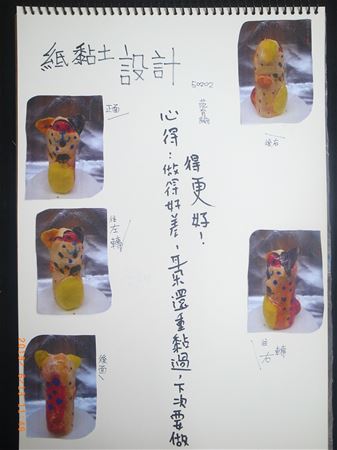 紙黏土設計
50202
正面
後右
往左轉
往右轉
後面
心得：做得好差，耳朵還重黏過，下次要做
得更好！